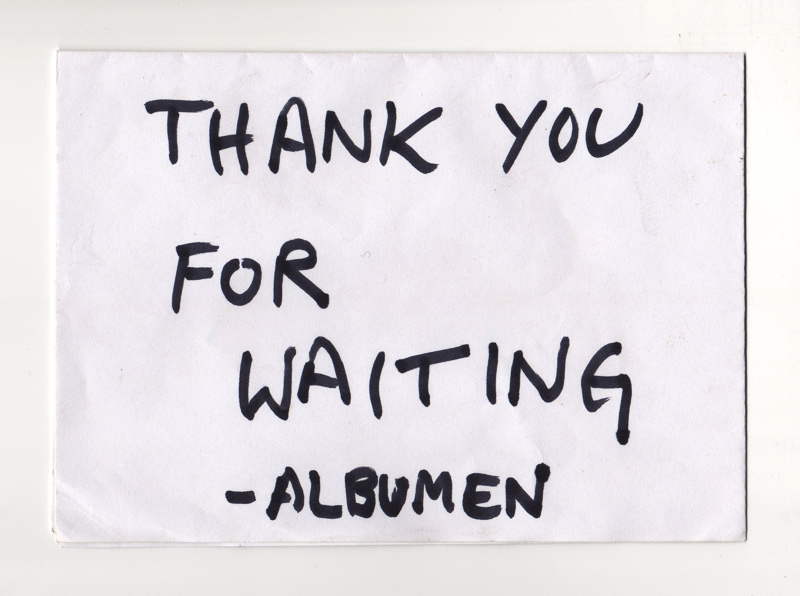 THANK YOU
FOR
WAITING
-ALBUMEN